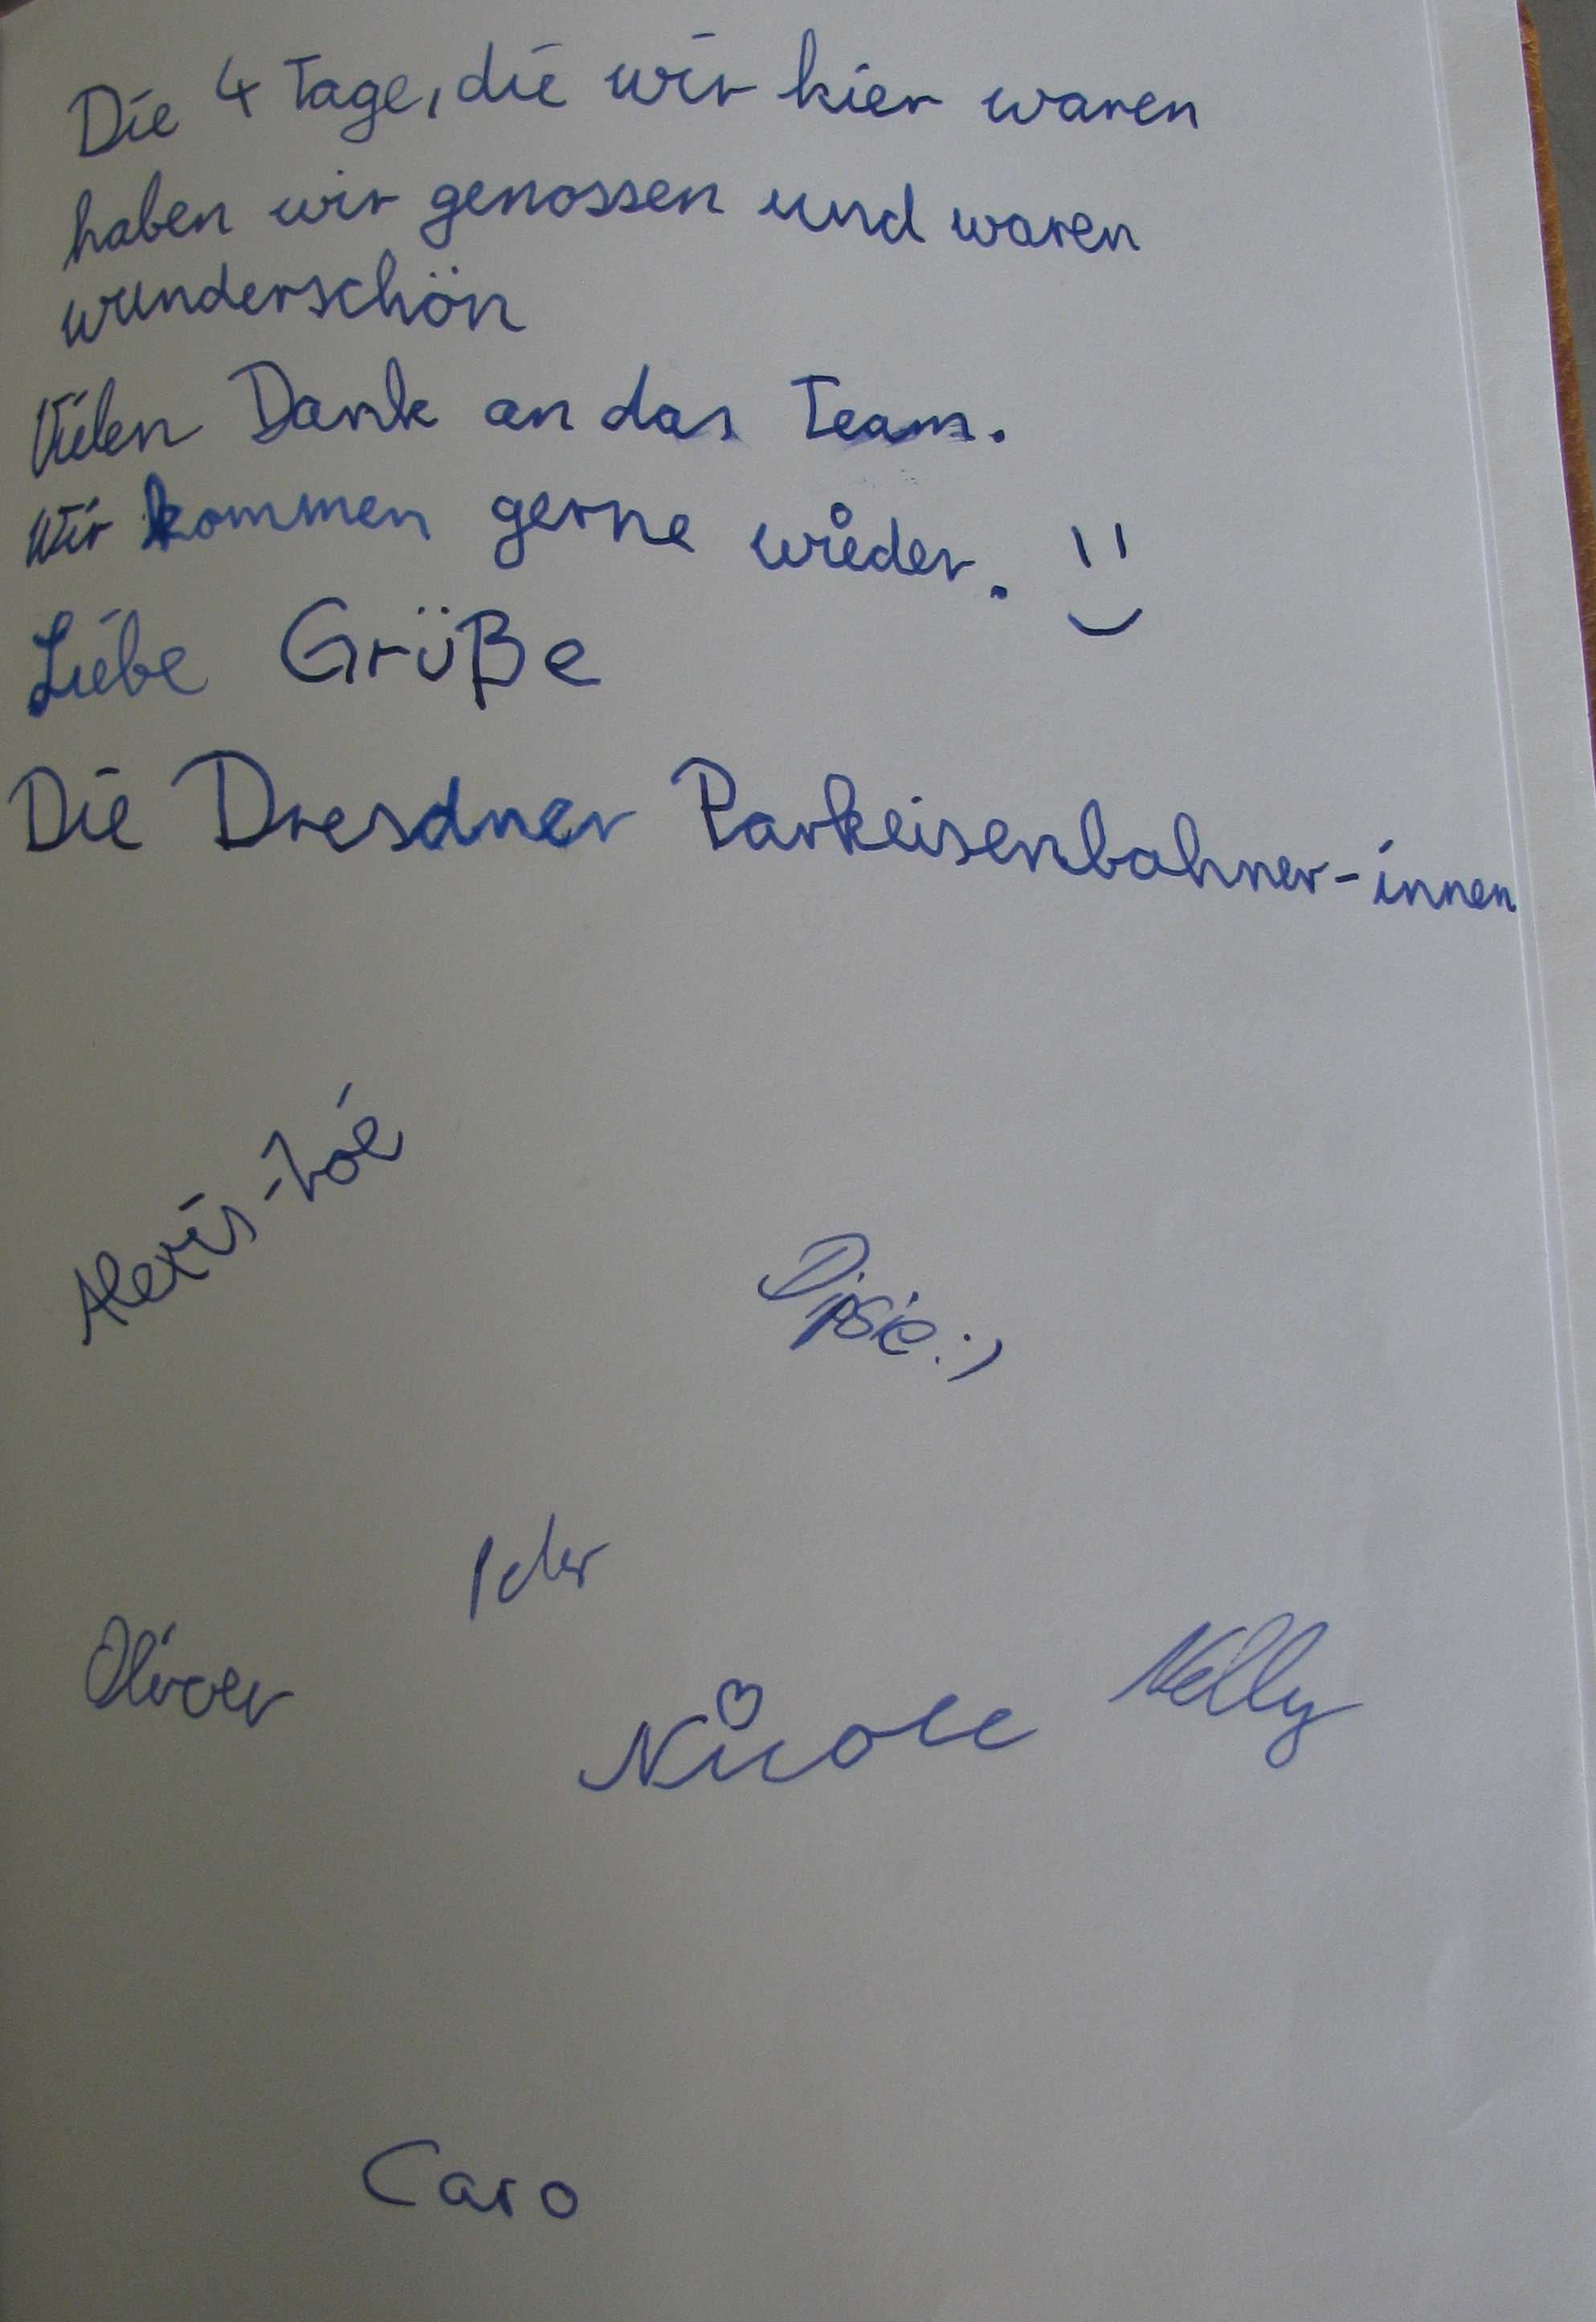 Die 4 Tage, die wir hier waren
haben wir genossen und waren
wunderschön
Vielen Dank an das Team.
Wir kommen gerne wieder. :)
Liebe Grüße
Die Dresdner Parkeisenbahner-innen
Alexis-Zoé
Dipsie :)
Oliver
Nicole
Nelly
Caro